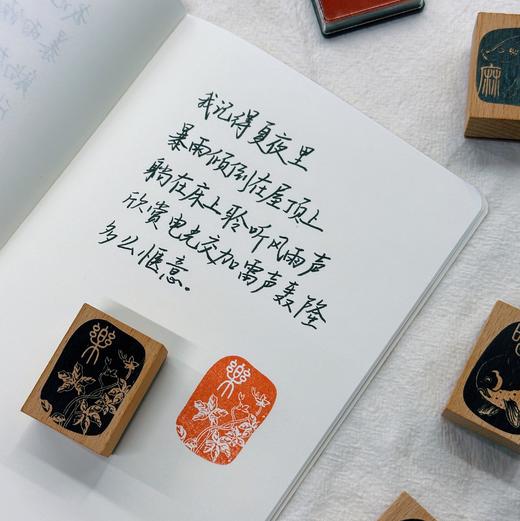 我记得夏夜里
暴雨倾倒在屋顶上
躺在床上聆听风雨声
欣赏电光交加雷声轰隆
多么惬意。
樂
樂
麻